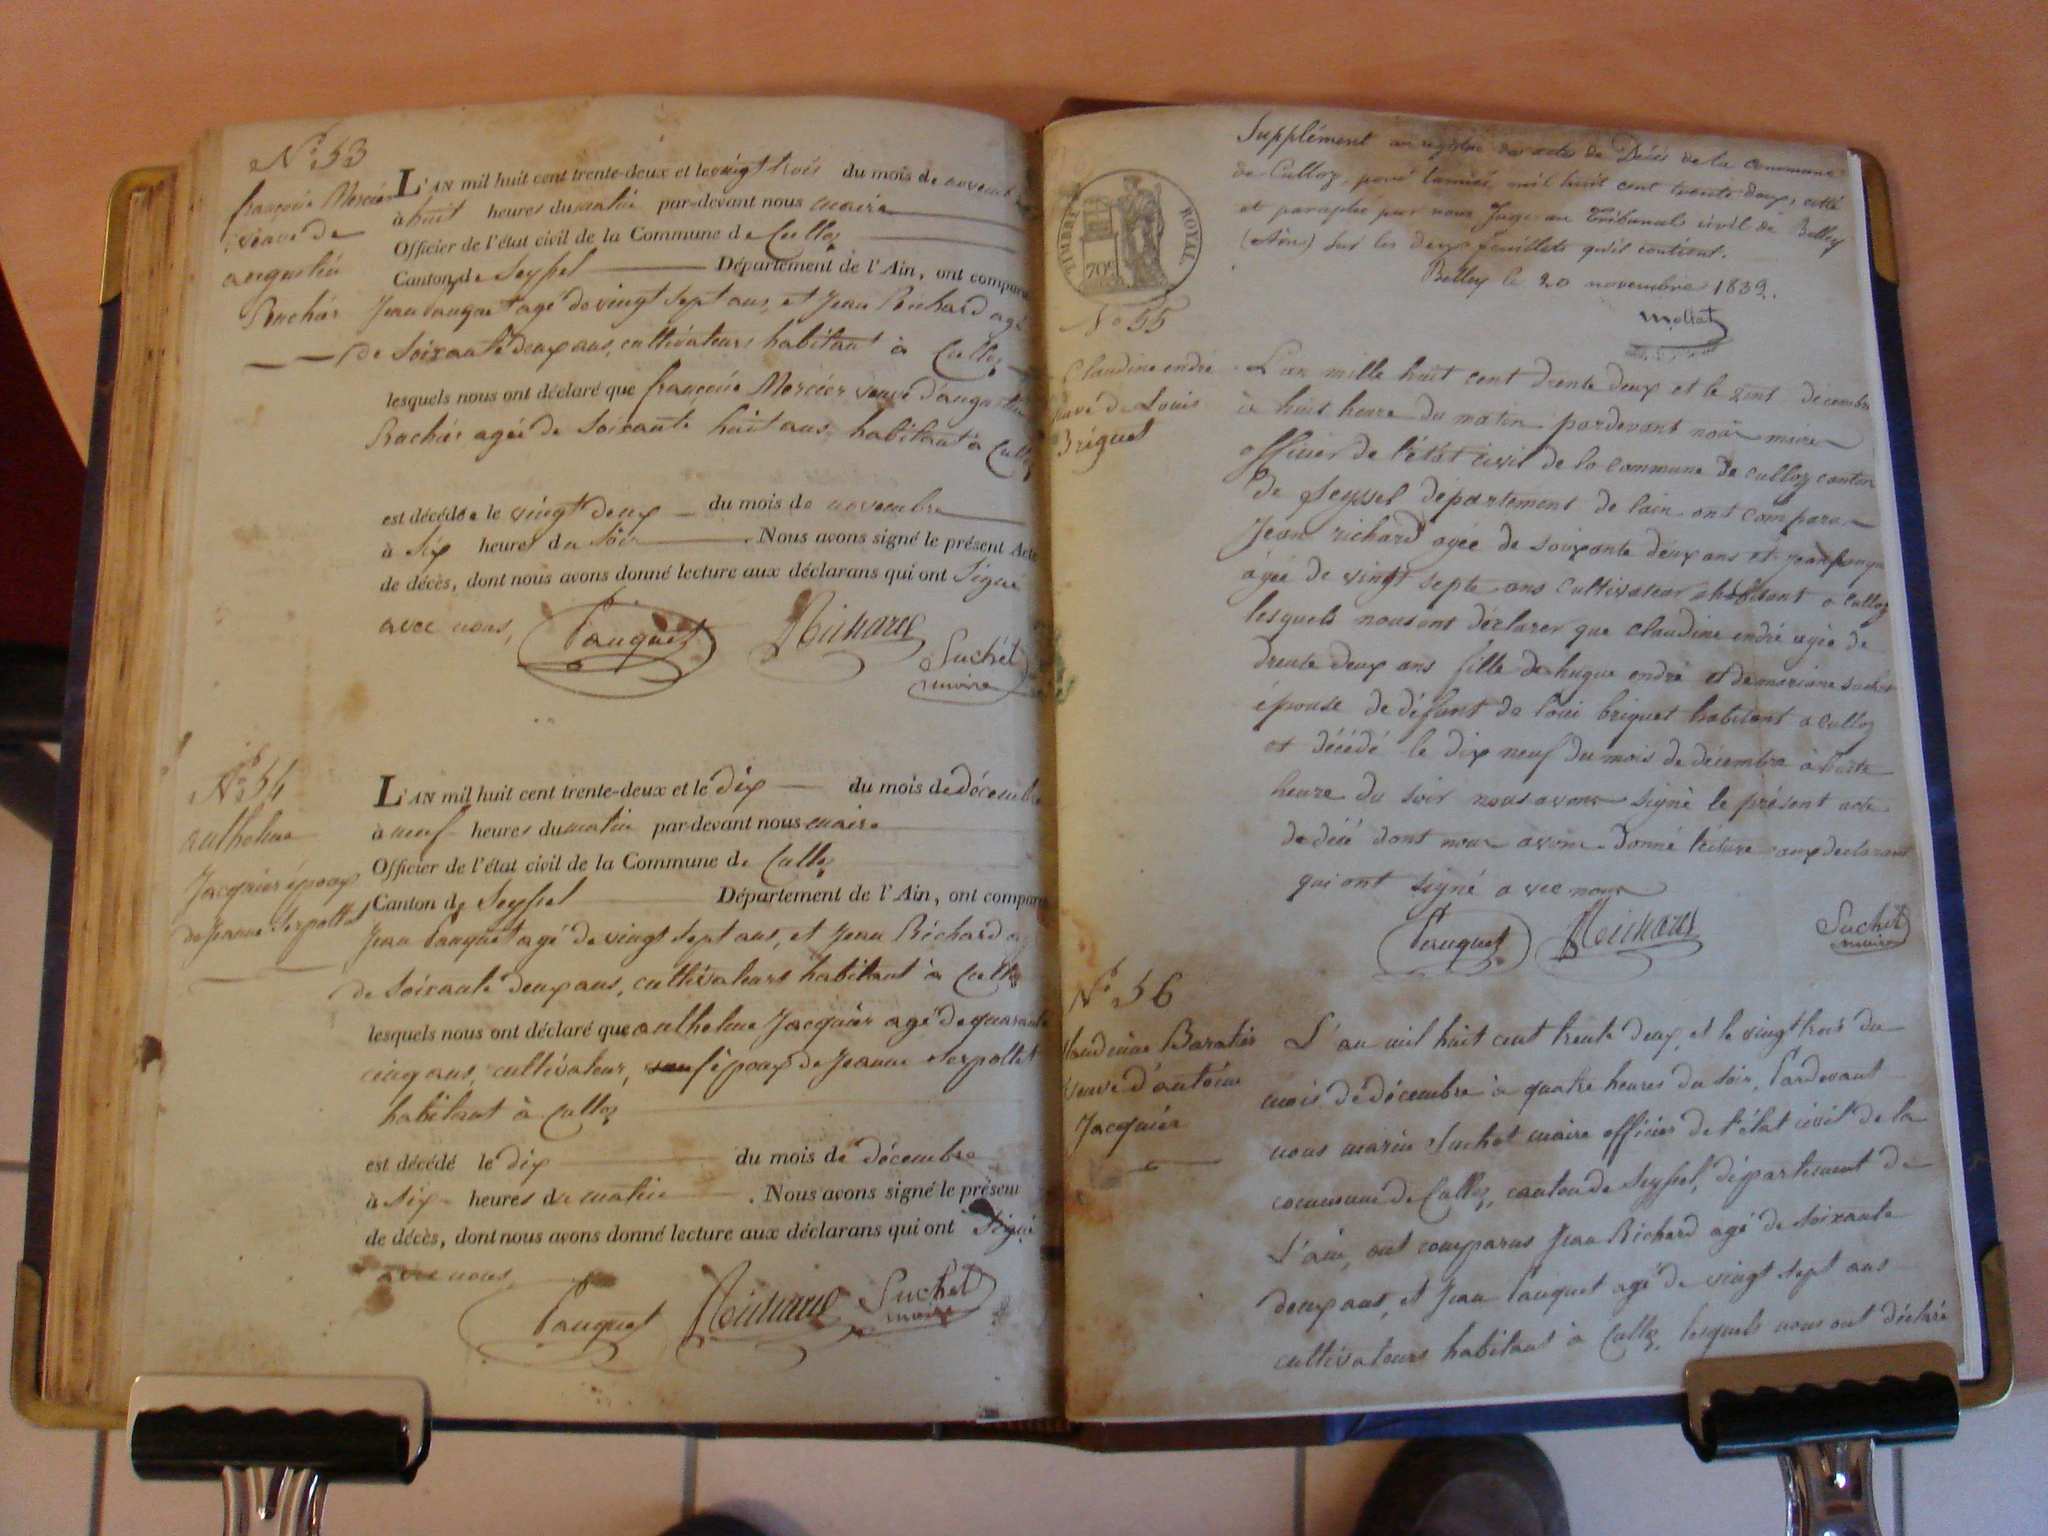 N.° 53
françoise Mercier
veuve de
augustin
Rochás
L'AN mil huit cent trente-deux et le vingt trois du mois de novembre
à huit heures du matin par-devant nous maire
Officier de l'état civil de la Commune de Culloz
Canton de Seyssel Département de l'Ain, ont comparu
Jean pauquet agé de vingt sept ans, et Jean Richard agé
de soixante deux ans, cultivateurs habitant à Culloz
lesquels nous ont déclaré que françoise Mercier veuve d'augustin
Rochás agée de soixante huit ans, habitant à Culloz
est décédée le vingt deux du mois de novembre
à six heures du soir . Nous avons signé le présent Acte
de décès, dont nous avons donné lecture aux déclarans qui ont signé
avec nous,
Pauquet Richard Suchet
maire
N.° 54
anthelme
Jacquier époux
de Jeanne Serpollet
L'AN mil huit cent trente-deux et le dix du mois de décembre
à neuf heures du matin par-devant nous maire
Officier de l'état civil de la Commune de Culloz
Canton de Seyssel Département de l'Ain, ont comparu
Jean Pauquet agé de vingt sept ans, et Jean Richard ag
de soixante deux ans, cultivateurs habitant à Culloz
lesquels nous ont déclaré que anthelme Jacquier agé de quarante
cinq ans, cultivateur, époux de Jeanne Serpollet
habitant à Culloz
est décédé le dix du mois de décembre
à six heures du matin . Nous avons signé le présent
de décès, dont nous avons donné lecture aux déclarans qui ont signé
avec nous
Pauquet Richard Suchet
maire
Supplément au registre des actes de Décès de la commune
de Culloz, pour l'année mil huit cent trente deux, cotté
et paraphé par nous Juge au Tribunal civil de Belley
(Ain) sur les deux feuillets qu'il contient.
Belley le 20 novembre 1832.
Mollat
TIMBRE ROYAL
70c
N.° 55
Claudine endré
veuve de Louis
Briquet
L'an mille huit cent drente deux et le vint décembre
à huit heure du matin pardevant nous maire
officier de l'état civil de la commune de culloz canton
de seyssel département de lain ont comparu
Jean richard agée de soixante deux ans et jean pauque
agée de vingt septe ans cultivateur habitant a culloz
lesquels nous ont déclarer que claudine endré agée de
drente deux ans fille de hugue endré et de mariane suchet
épouse de défunt de loui briquet habitant a culloz
et décédé le dix neuf du mois de décembre à huite
heure du soir nous avons signé le présent acte
de décé dont nous avons donné lecture aux declarant
qui ont signé avec nous
Pauquet Richard Suchet
maire
N.° 56
Claudine Baratier
veuve d'antoine
Jacquier
L'an mil huit cent trente deux, et le vingt trois du
mois de décembre à quatre heures du soir, Pardevant
nous marin Suchet maire officier de l'état civil de la
commune de Culloz, canton de Seyssel, département de
l'ain, ont comparus Jean Richard agé de soixante
deux ans, et Jean Pauquet agé de vingt sept ans
cultivateurs habitant à Culloz, lesquels nous ont déclaré